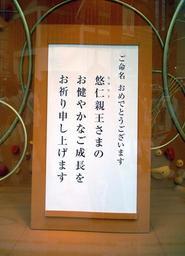 ご命名 おめでとうございます
悠仁親王さまの
お健やかなご成長を
お祈り申し上げます